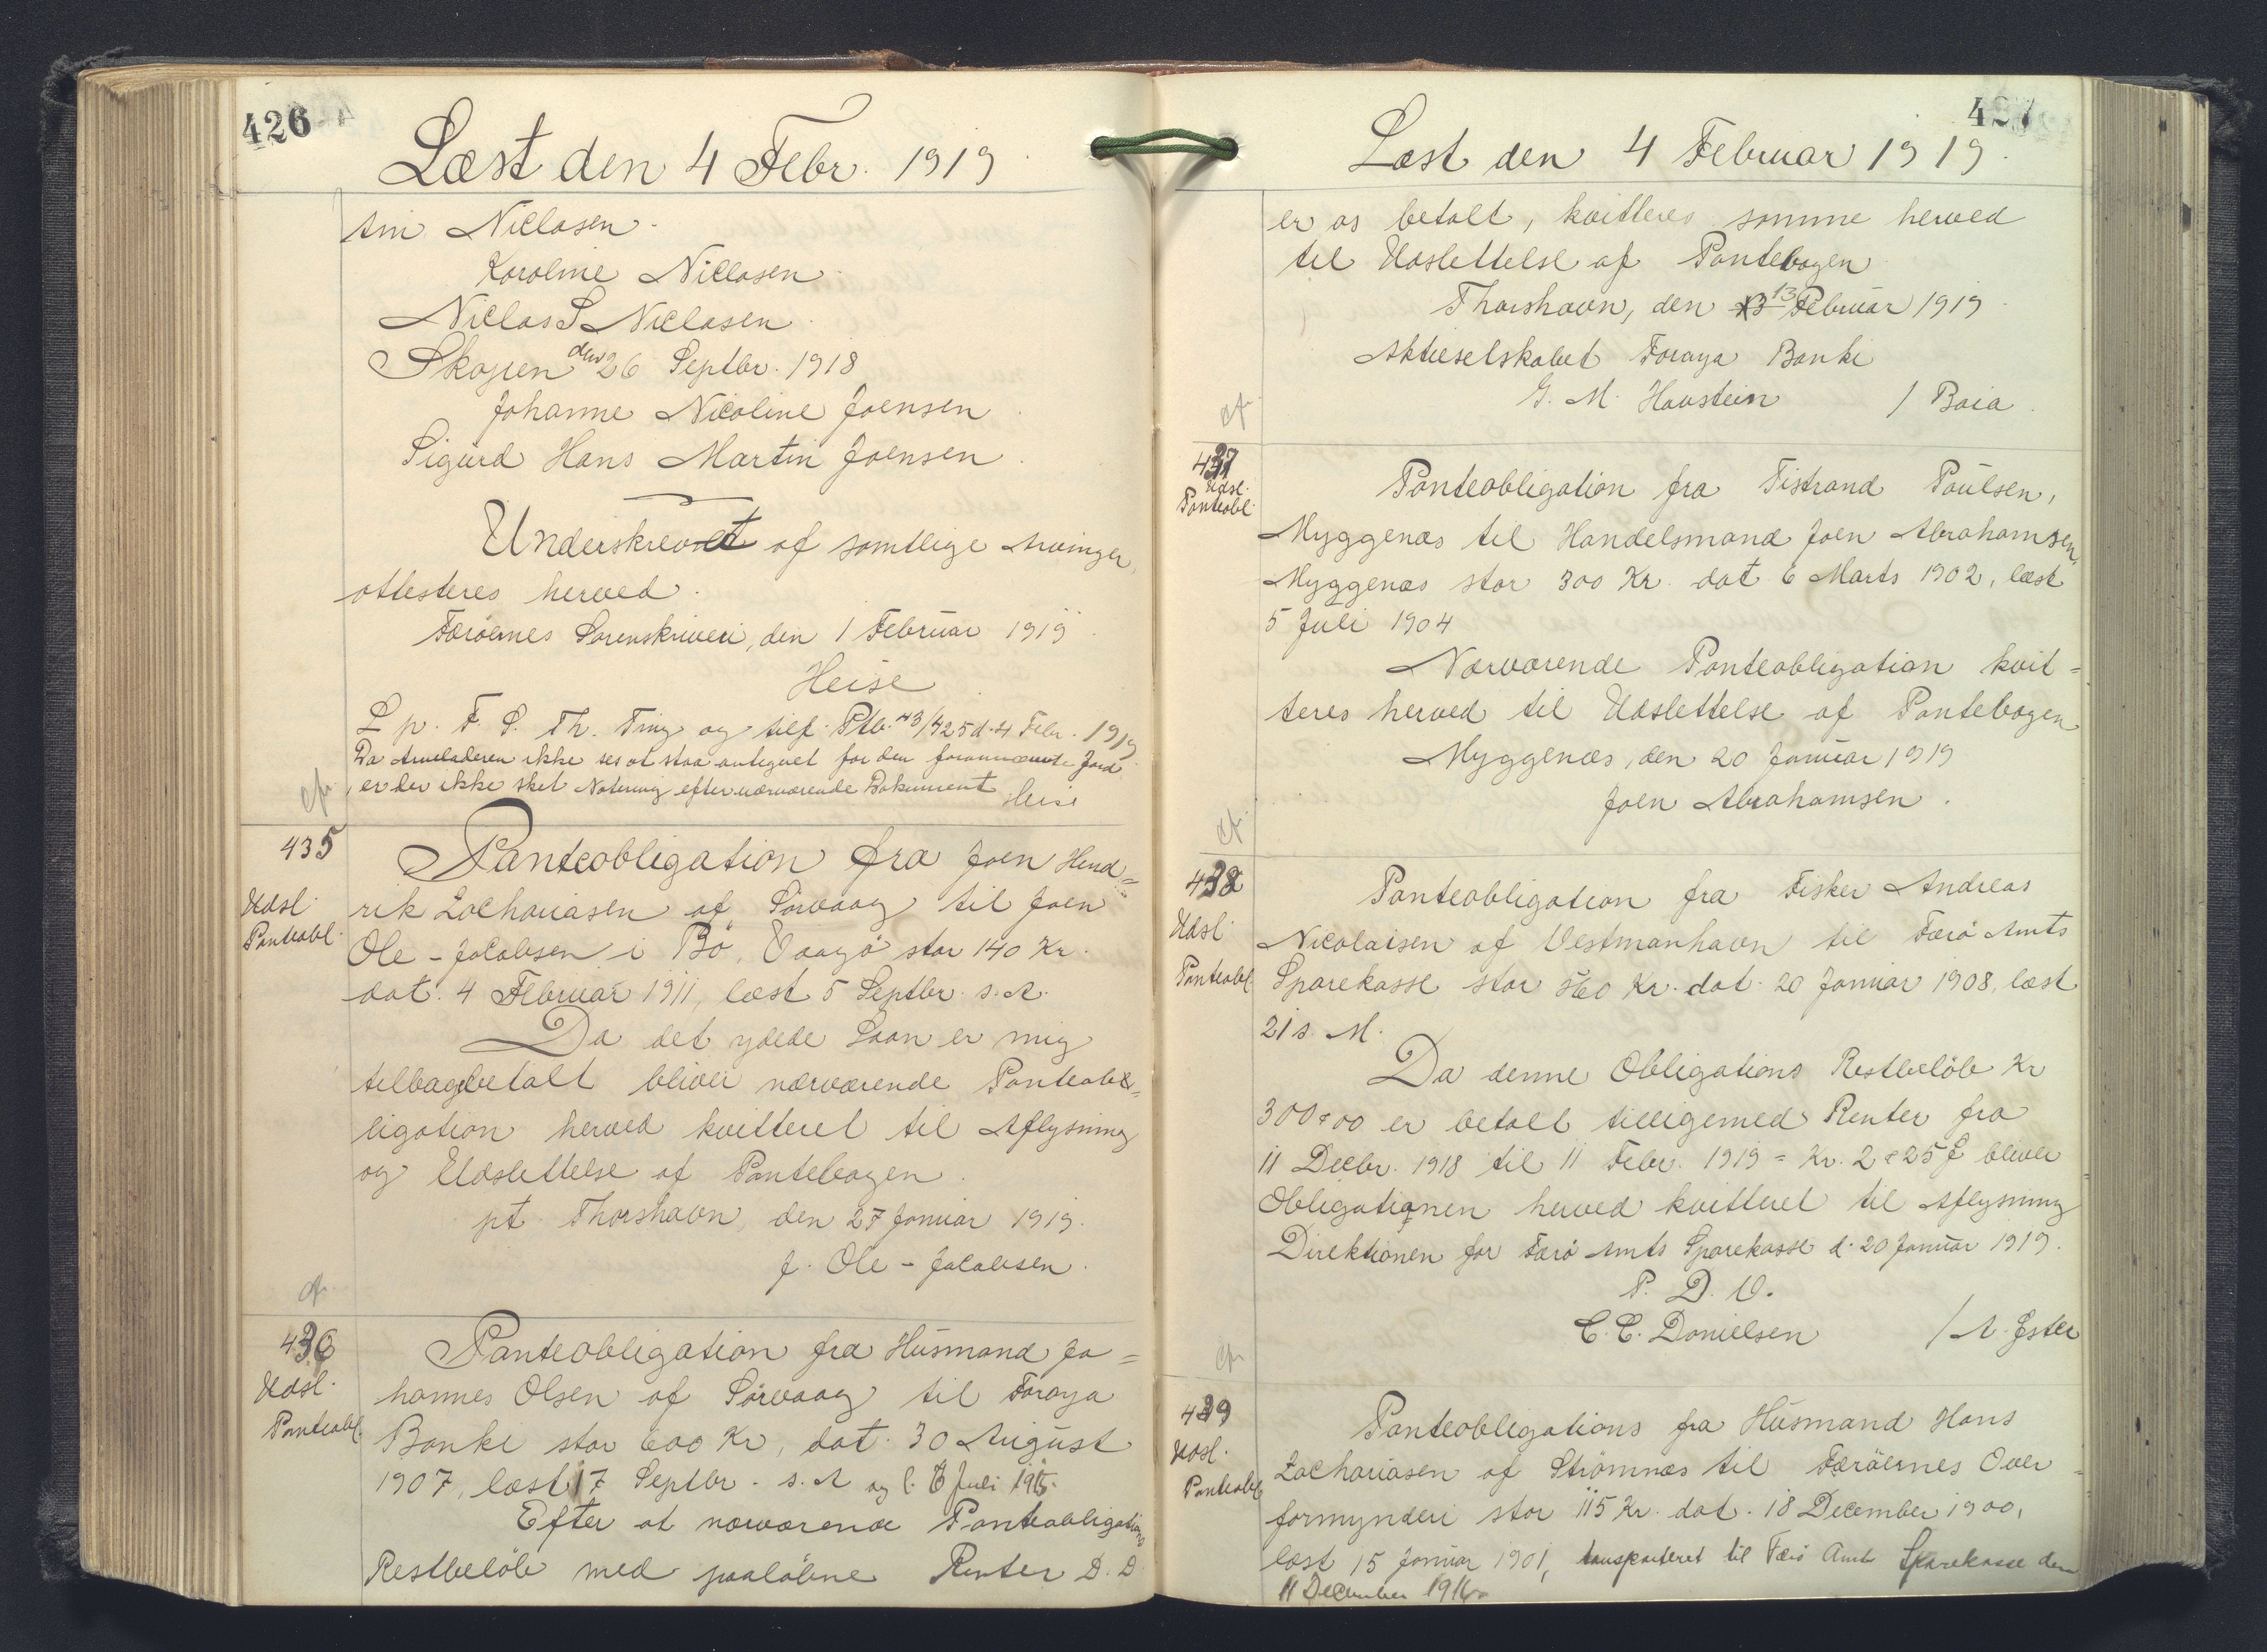 426
Læst den 4 Febr. 1919
tin Niclasen.
Karoline Niclasen
Niclas S Niclasen
Skopen den 26 Septbr. 1918
Johanne Nicoline Joensen
Sigurd Hans Martin Joensen
Underskrevet af samtlige Arvinger,
attesteres herved.
Færöernes Sorenskriveri, den 1 Februar 1919
Heise
L p. F. S. Th. Ting og tilf. Ptb. 43/425 d. 4 Febr. 1919
Da Arveladeren ikke ses at staa antegnet for den forannævnte Jord
, er der ikke sket Notering efter nærværende Dokument Heise
cfr.
435
Udsl.
Panteobl.
Panteobligation fra Joen Hend=
rik Zachariasen af Sörvaag til Joen
Ole-Jacobsen i Bö, Vaagö stor 140 Kr.
dat. 4 Februar 1911, læst 5 Septbr. s. A.
Da det ydede Laan er mig
tilbagebetalt bliver nærværende Panteob=
ligation herved kvitteret til Aflysning
og Udslettelse af Pantebogen.
pt. Thorshavn, den 27 Januar 1919.
J. Ole-Jacobsen.
cfr.
436
Udsl.
Panteobl.
Panteobligation fra Husmand Jo=
hannes Olsen af Sörvaag til Foroya
Banki stor 600 Kr, dat. 30 August
1907, læst 17 Septbr. s. A og l. 6 Juli 1915.
Efter at nærværende Panteobligations
Restbelöb med paalöbne Renter D. D.
427
Læst den 4 Februar 1919.
er os betalt, kvitteres samme herved
til Udslettelse af Pantebogen
Thorshavn, den 13 Februar 1919
Aktieselskabet Foroya Banki
G. M. Haustein / Baia.
cfr.
437
Udsl.
Panteobl.
Panteobligation fra Tistrand Poulsen,
Myggenæs til Handelsmand Joen Abrahamsen,
Myggenæs stor 300 Kr. dat 6 Marts 1902, læst
5 Juli 1904
Nærværende Panteobligation kvit=
teres herved til Udslettelse af Pantebogen
Myggenæs, den 20 Januar 1919
Joen Abrahamsen.
cfr.
438
Udsl.
Panteobl.
Panteobligation fra Fisker Andreas
Nicolaisen af Vestmanhavn til Færö Amts
Sparekasse stor 560 Kr. dat. 20 Januar 1908, læst
21 s. M.
Da denne Obligations Restbelöb Kr
300=00 er betalt tilligemed Renter fra
11 Decbr. 1918 til 11 Febr. 1919 = Kr. 2=25 Ø bliver
Obligationen herved kvitteret til Aflysning
Direktionen for Færö Amts Sparekasse d. 20 Januar 1919.
P. D. V.
C. C. Danielsen / A. Ester
cfr
439
Udsl.
Panteobl.
Panteobligations fra Husmand Hans
Zachariasen af Strömnæs til Færöernes Over=
formynderi stor 115 Kr. dat. 18 December 1900,
læst 15 Januar 1901, transporteret til Færö Amts Sparekasse den
11 December 1916